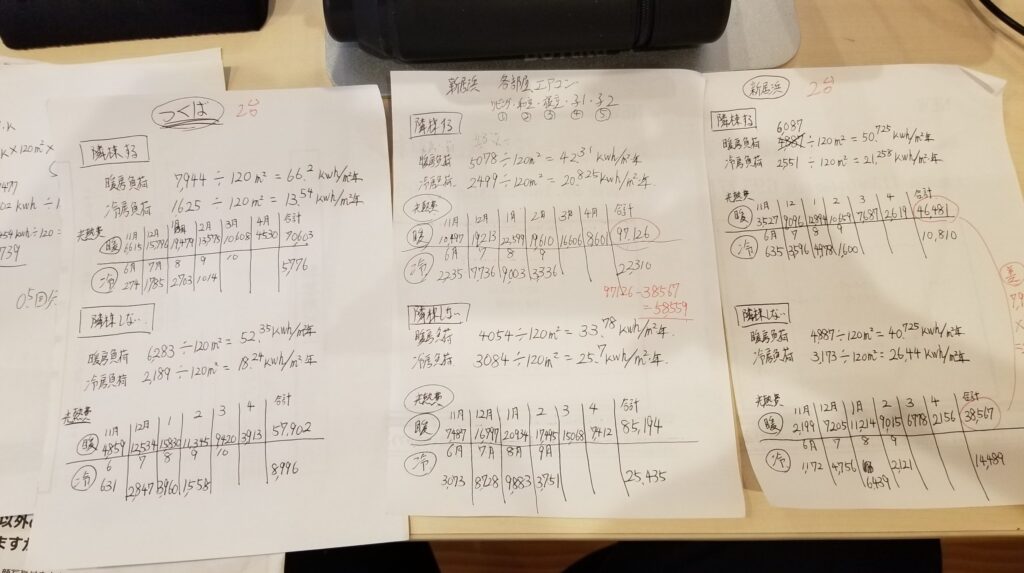 つくば 2台
隣棟する
暖房負荷 7944 ÷ 120m² = 66.2 kwh/m²年
冷房負荷 1625 ÷ 120m² = 13.54 kwh/m²年
光熱費
11月 12月 1月 2月 3月 4月 合計
暖 6615 15796 19479 13575 10608 4530 70603
6月 7月 8 9 10
冷 274 1785 2703 1014 5776
隣棟しない
暖房負荷 6283 ÷ 120m² = 52.35 kwh/m²年
冷房負荷 2,189 ÷ 120m² = 18.24 kwh/m²年
光熱費
11月 12月 1 2 3 4 合計
暖 4859 12534 15830 11,345 9420 3913 57,902
6 7 8 9 10
冷 631 2,847 3,960 1,558 8,996
新居浜 各部屋エアコン
リビング・和室・寝室・子1・子2
① ② ③ ④ ⑤
隣棟する
暖房負荷 5078 ÷ 120m² = 42.31 kwh/m²年
冷房負荷 2499 ÷ 120m² = 20.825 kwh/m²年
光熱費
11月 12月 1月 2月 3月 4月 合計
暖 10,497 19,213 22,599 19,610 16,606 8,601 97,126
6月 7 8 9
冷 2,235 7,736 9,003 3,336 22,310
97126-38567
=58559
隣棟しない
暖房負荷 4054 ÷ 120m² = 33.78 kwh/m²年
冷房負荷 3084 ÷ 120m² = 25.7 kwh/m²・年
光熱費
11月 12月 1月 2 3 4 合計
暖 7487 16,797 20934 17495 15068 7412 85,194
6月 7月 8月 9月
冷 3,073 8,728 9,883 3,751 25,435
新居浜 2台
隣棟する
6,087
暖房負荷 4887 ÷ 120m² = 50.725 kwh/m²年
冷房負荷 2551 ÷ 120m² = 21.258 kwh/m²年
光熱費
11月 12 1 2 3 4 合計
暖 3527 9096 12894 10659 7687 2619 46,481
6月 7 8 9
冷 635 3,596 4,978 1,600 10,810
隣棟しない
暖房負荷 4887 ÷ 120m² = 40.725 kwh/m²年
冷房負荷 3,173 ÷ 120m² = 26.44 kwh/m²年
光熱費
11月 12月 1月 2 3 4 合計
暖 2,199 7,205 11,214 9,015 6,778 2,156 38,567
6月 7 8 9
冷 1,172 4,756 6,439 2,121 14,489
以外の
ますか